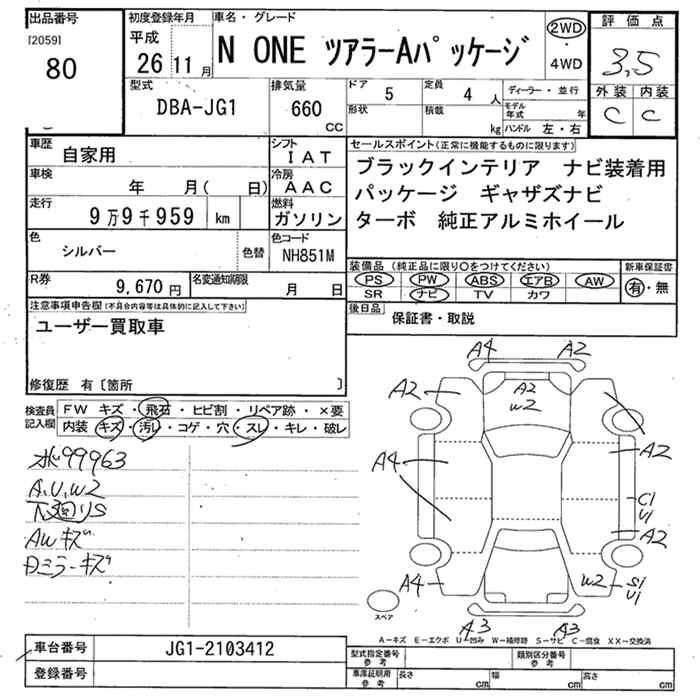 出品番号
[2059]
80
初度登録年月
平成
26 11月
車名・グレード
N ONE ツアラーAパッケージ
2WD
・
4WD
評価点
3.5
外装 内装
C C
型式
DBA-JG1
排気量
660
CC
ドア
5
定員
4 人
形状
積載
kg
ディーラー・並行
モデル年式 年
ハンドル 左・右
車歴
自家用
シフト
IAT
車検
年 月( 日)
冷房
AAC
走行
9万9千959 km
燃料
ガソリン
色
シルバー
色替
色コード
NH851M
R券
9,670円
名変通知期限
月 日
セールスポイント(正常に機能するものに限ります)
ブラックインテリア ナビ装着用
パッケージ ギャザズナビ
ターボ 純正アルミホイール
装備品 (純正品に限り○をつけてください)
新車保証書
PS PW ABS エアB AW
SR ナビ TV カワ
有・無
後日品
保証書・取説
注意事項申告欄(不具合内容等は具体的に記入して下さい)
ユーザー買取車
修復歴 有〔箇所 〕
検査員
記入欄
FW キズ・飛石・ヒビ割・リペア跡・×要
内装 キズ・汚レ・コゲ・穴・スレ・キレ・破レ
99963
A、U、W2
AWキズ
Dミラーキズ
A4 A2
A2
A2
W2
A4
A2
C1
U1
A2
A4
W2
S1
U1
A3 A3
スペア
A－キズ E－エクボ U－凹み W－補修跡 S－サビ C－腐食 XX－交換済
車台番号
JG1-2103412
登録番号
型式指定番号
参考
類別区分番号
参考
車庫証明用
参考
長さ cm
幅 cm
高さ cm